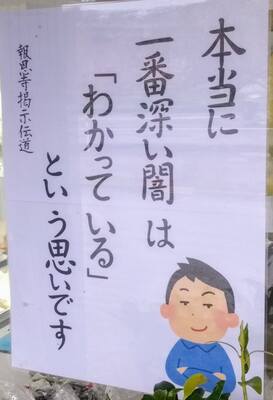 本当に
一番深い闇は
「わかっている」
という思いです
報恩寺掲示伝道